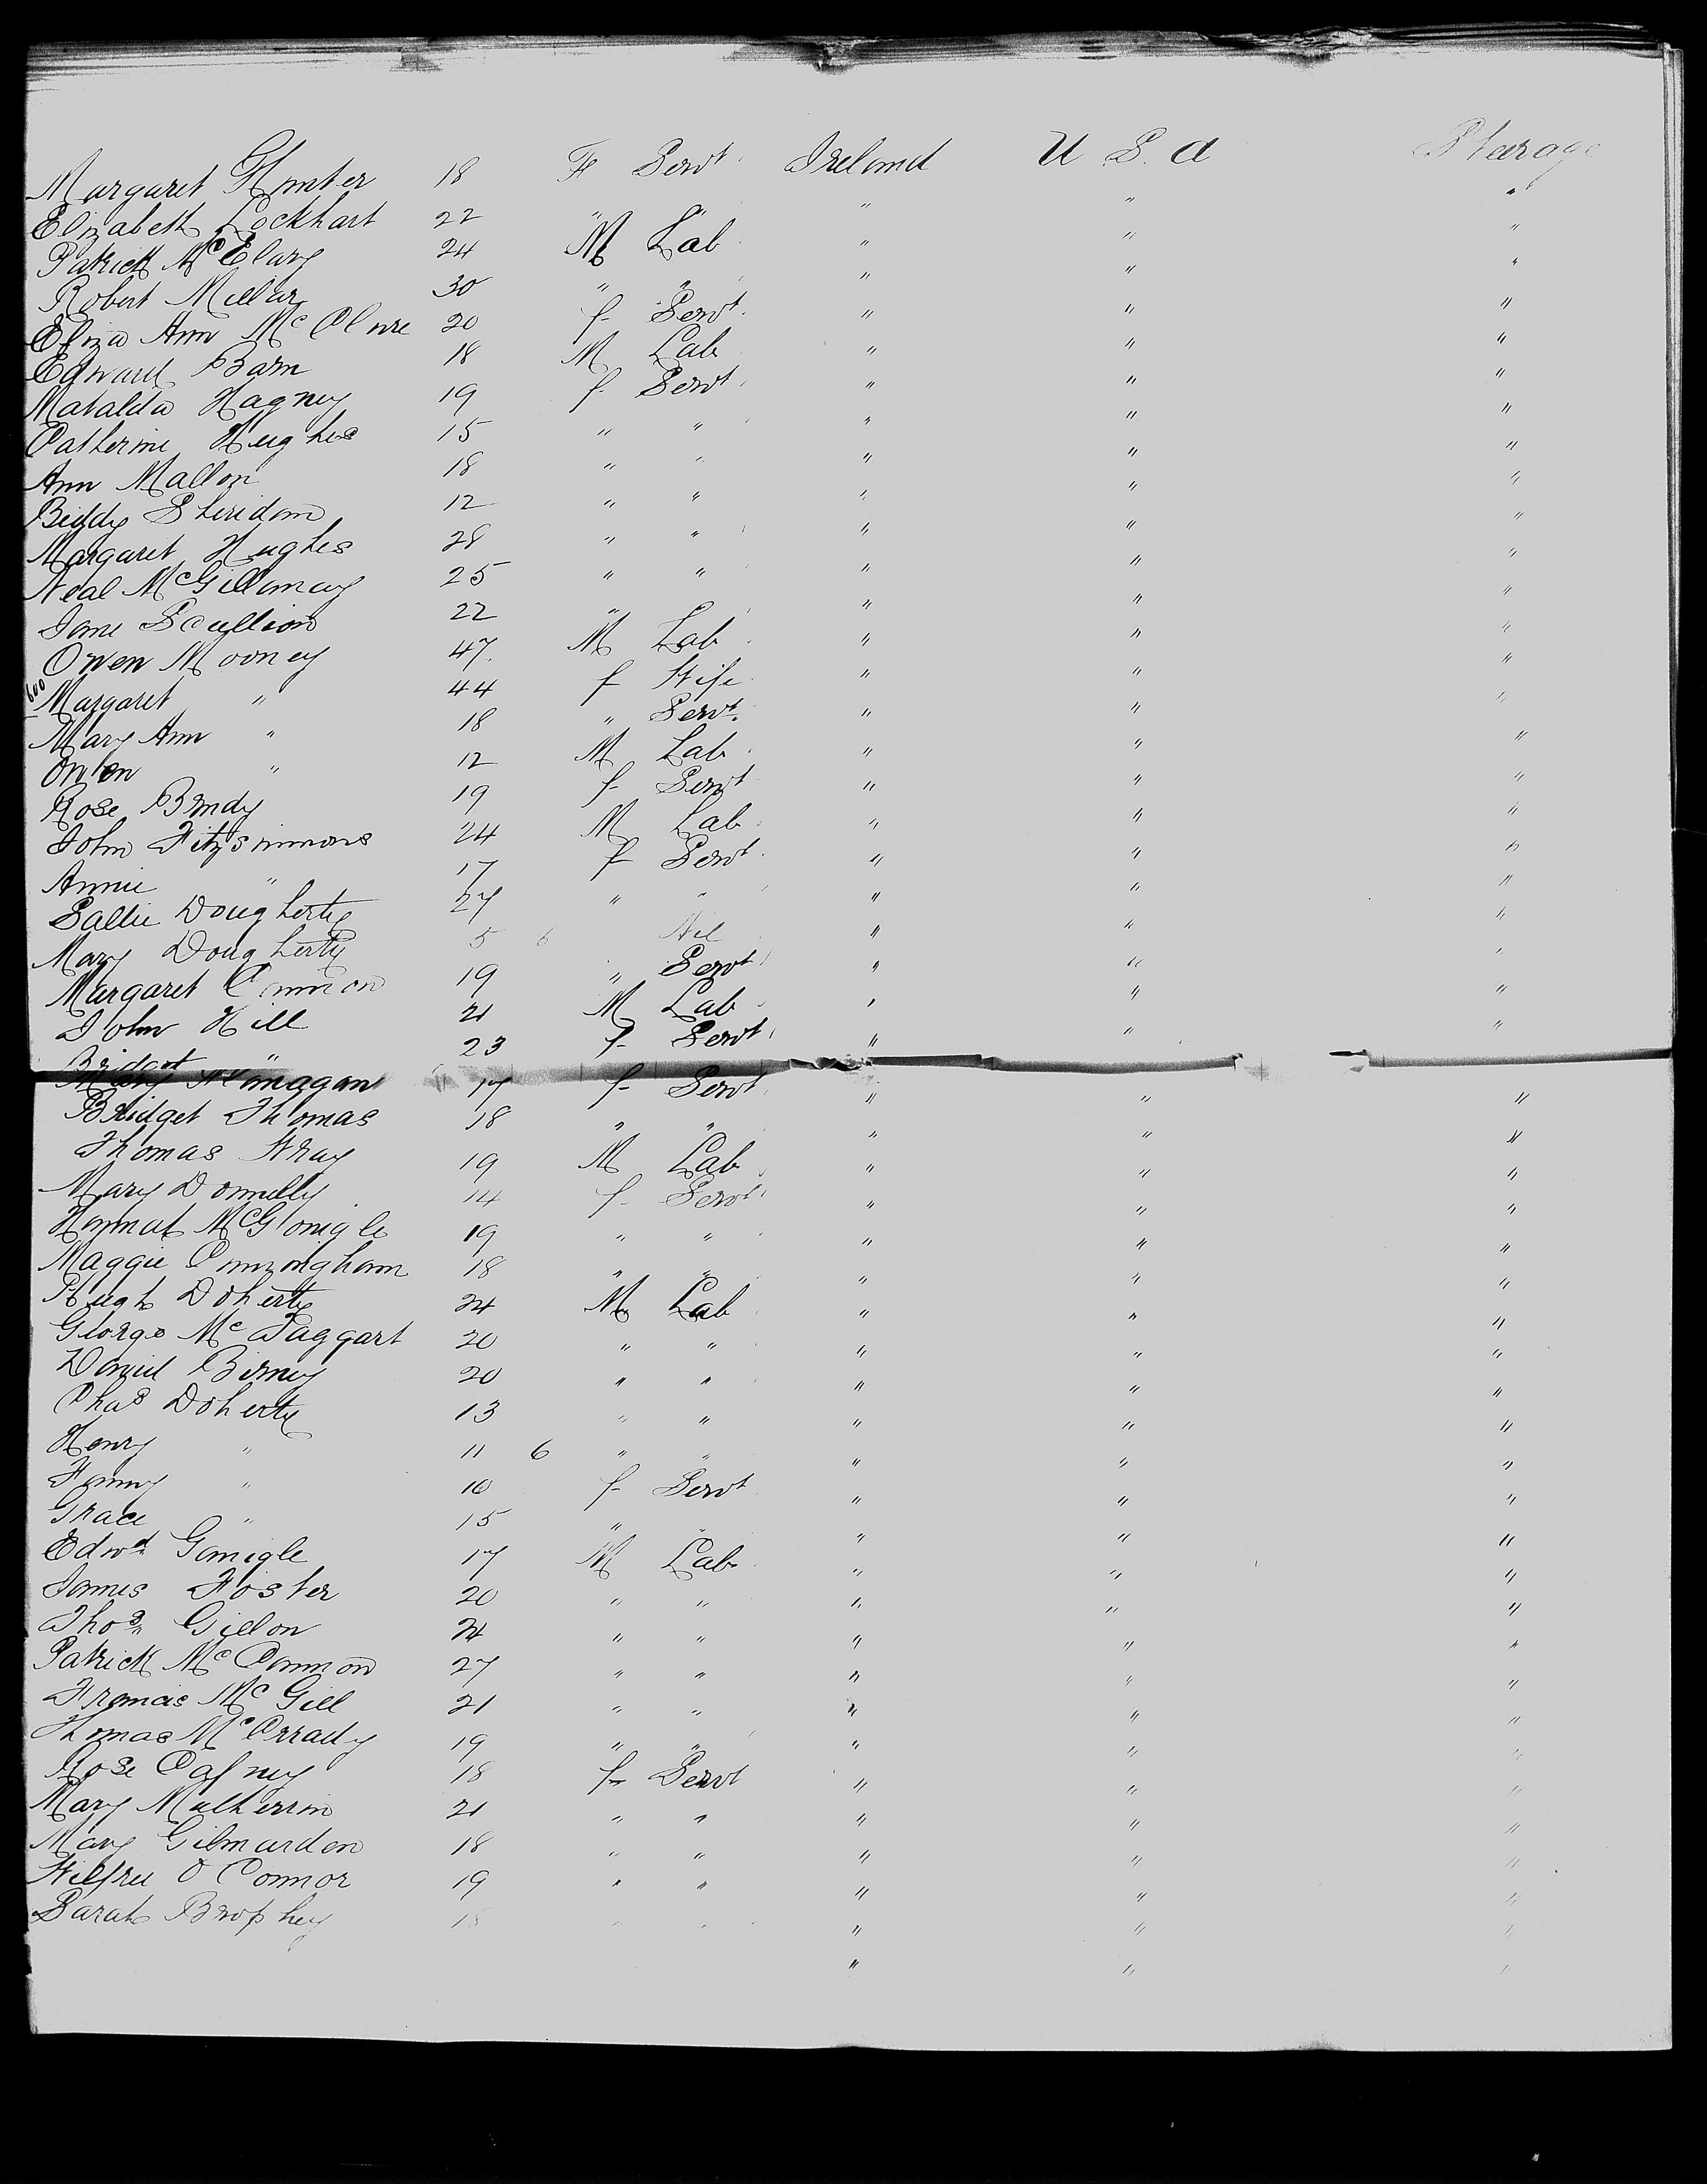 Margaret Hunter 18 F Servt Ireland U S. A Steerage
Elizabeth Lockhart 22 " " " " "
Patrick McElary 24 M Lab " " "
Robert Millar 30 " " " " "
Eliza Ann McClure 20 f Servt. " " "
Edward Barn 18 M Lab " " "
Matalda Hagney 19 f Servt " " "
Catherine Hughes 15 " " " " "
Ann Mallon 18 " " " " "
Biddy Sheridan 12 " " " " "
Margaret Hughes 28 " " " " "
Neal McGillomay 25 " " " " "
Jane Scullion 22 " " " "
Owen Mooney 47 M Lab " " "
600 Margaret " 44 f Wife " " "
Mary Ann " 18 " Servt. " " "
Owen " 12 M Lab " " "
Rose Brady 19 f Servt " " "
John Fitzsimmons 24 M Lab " " "
Annie " 17 f Servt " " "
Sallie Dougherty 27 " " " " "
Mary Dougherty 5 6 Nil " " "
Margaret Cannon 19 " Servt " " "
John Hill 21 M Lab " " "
Bridget " 23 f Servt " " "
Flanagan 17 f Servt " " "
Bridget Thomas 18 " " " " "
Thomas Wray 19 M Lab " " "
Mary Donnelly 14 f Servt " " "
Hannah McGonigle 19 " " " " "
Maggie Cunningham 18 " " " " "
Hugh Doherty 24 M Lab " " "
George McTaggart 20 " " " " "
Daniel Birney 20 " " " " "
Chas Doherty 13 " " " " "
Henry " 11 6 " " " " "
Fanny " 10 f Servt " " "
Grace " 15 " " " " "
Edwd Gonigle 17 M Lab " " "
James Foster 20 " " " " "
Thos Gillon 24 " " " " "
Patrick McCannon 27 " " " " "
Francis McGill 21 " " " " "
Thomas McCrrady 19 " " " " "
Rose Cafney 18 f Servt " " "
Mary Mulherrin 21 " " " " "
Mary Gilmarden 18 " " " " "
Wilfred O'Connor 19 " " " " "
Sarah Brophey 18 " " " " "
" " "